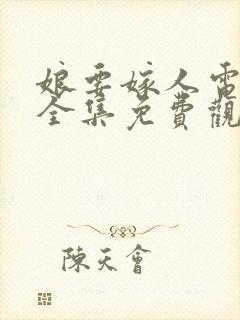 娘要嫁人電
全集免費觀
陳天會